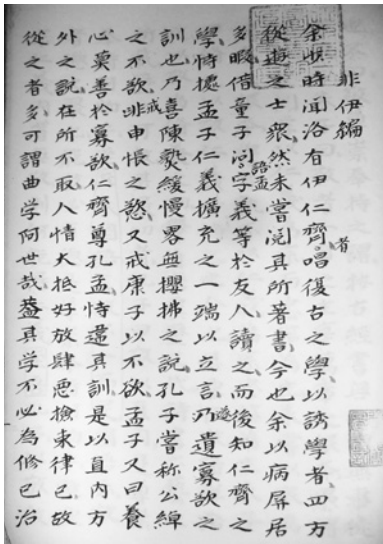 非伊編
余㞕時聞洛有伊仁齋者唱復古之學以誘學者四方
從遊之士衆然未嘗閱其所著書今也余以病屏居
多暇借童子問語孟字義等於友人讀之而後知仁齋之
學恃據孟子仁義擴充之一端以立言乃遂遺寡欲之
訓也乃喜陳熒緩慢畧無攖拂之說孔子嘗称公綽
之不欲戒申棖之慾又戒康子以不欲孟子又曰養
心莫善於寡欲仁齋尊孔孟恃違其訓是以直內方
外之說在所不取人情大抵好放肆惡撿束律己故
從之者多可謂曲学阿世哉蓋其学不必為修己治